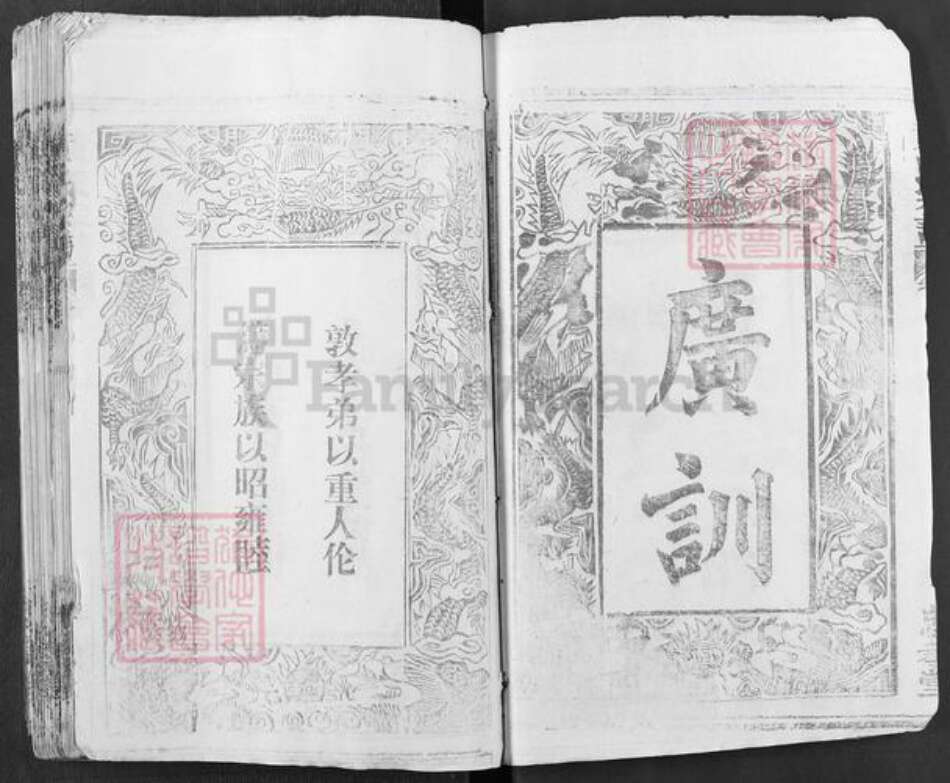 廣訓
敦孝弟以重人伦
篤宗族以昭雍睦
FamilySearch